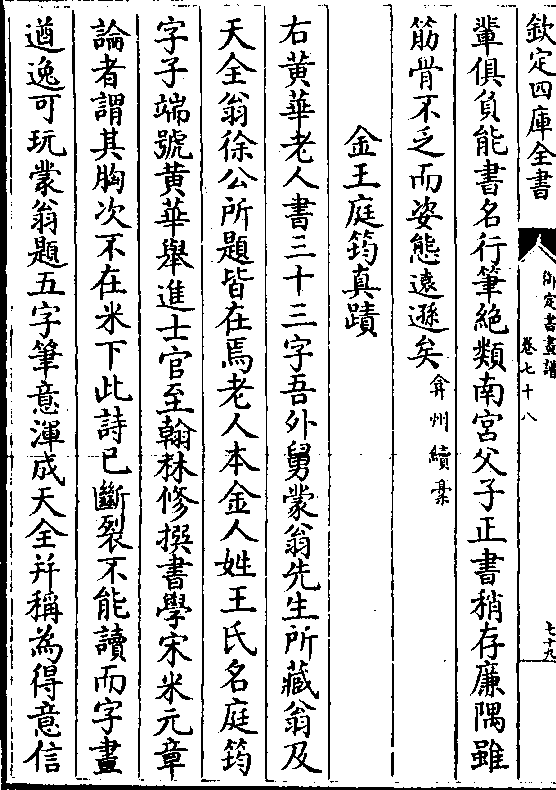 欽定四庫全書
御定書畫譜
卷七十八
七十九
輩俱負能書名行筆絕類南宮父子正書稍存廉隅雖
筋骨不乏而姿態遠遜矣弇州續稾
金王庭筠真蹟
右黃華老人書三十三字吾外舅蒙翁先生所藏翁及
天全翁徐公所題皆在焉老人本金人姓王氏名庭筠
字子端號黃華舉進士官至翰林修撰書學宋米元章
論者謂其胸次不在米下此詩已斷裂不能讀而字畫
遒逸可玩蒙翁題五字筆意渾成天全并稱為得意信